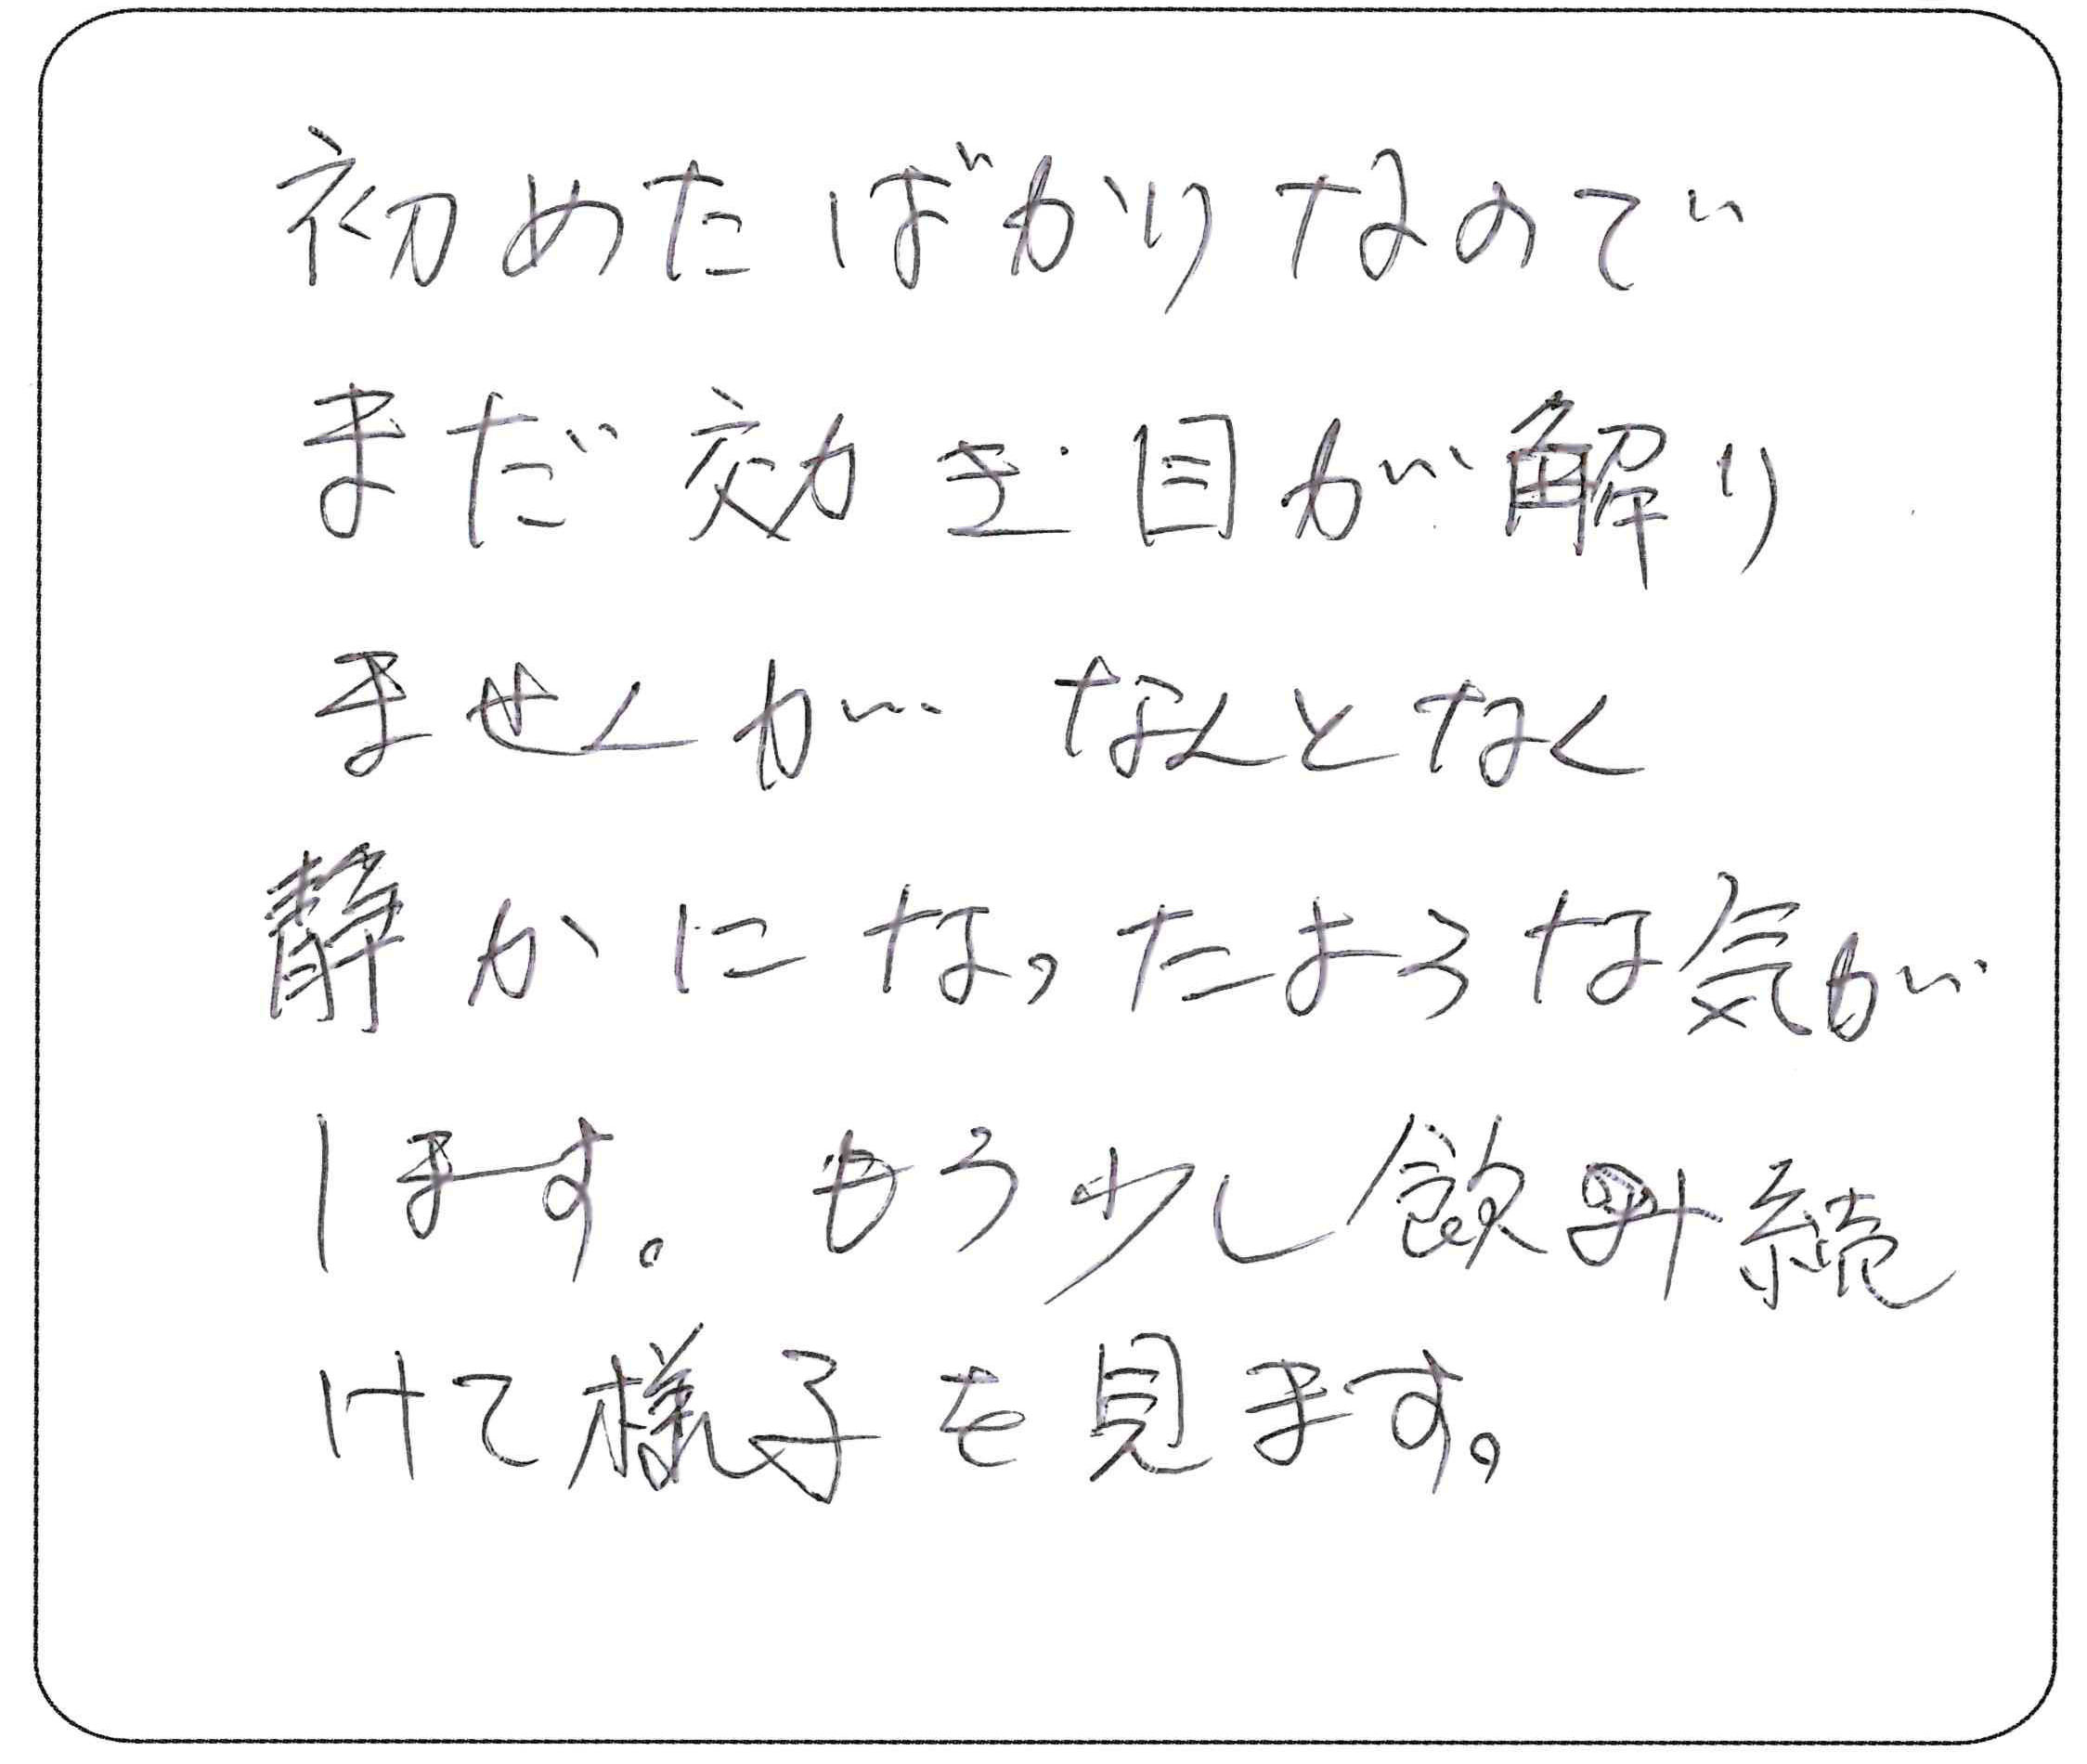 初めたばかりなので
まだ効き目が解り
ませんが なんとなく
静かになったような気が
します。 もう少し飲み続
けて様子を見ます。